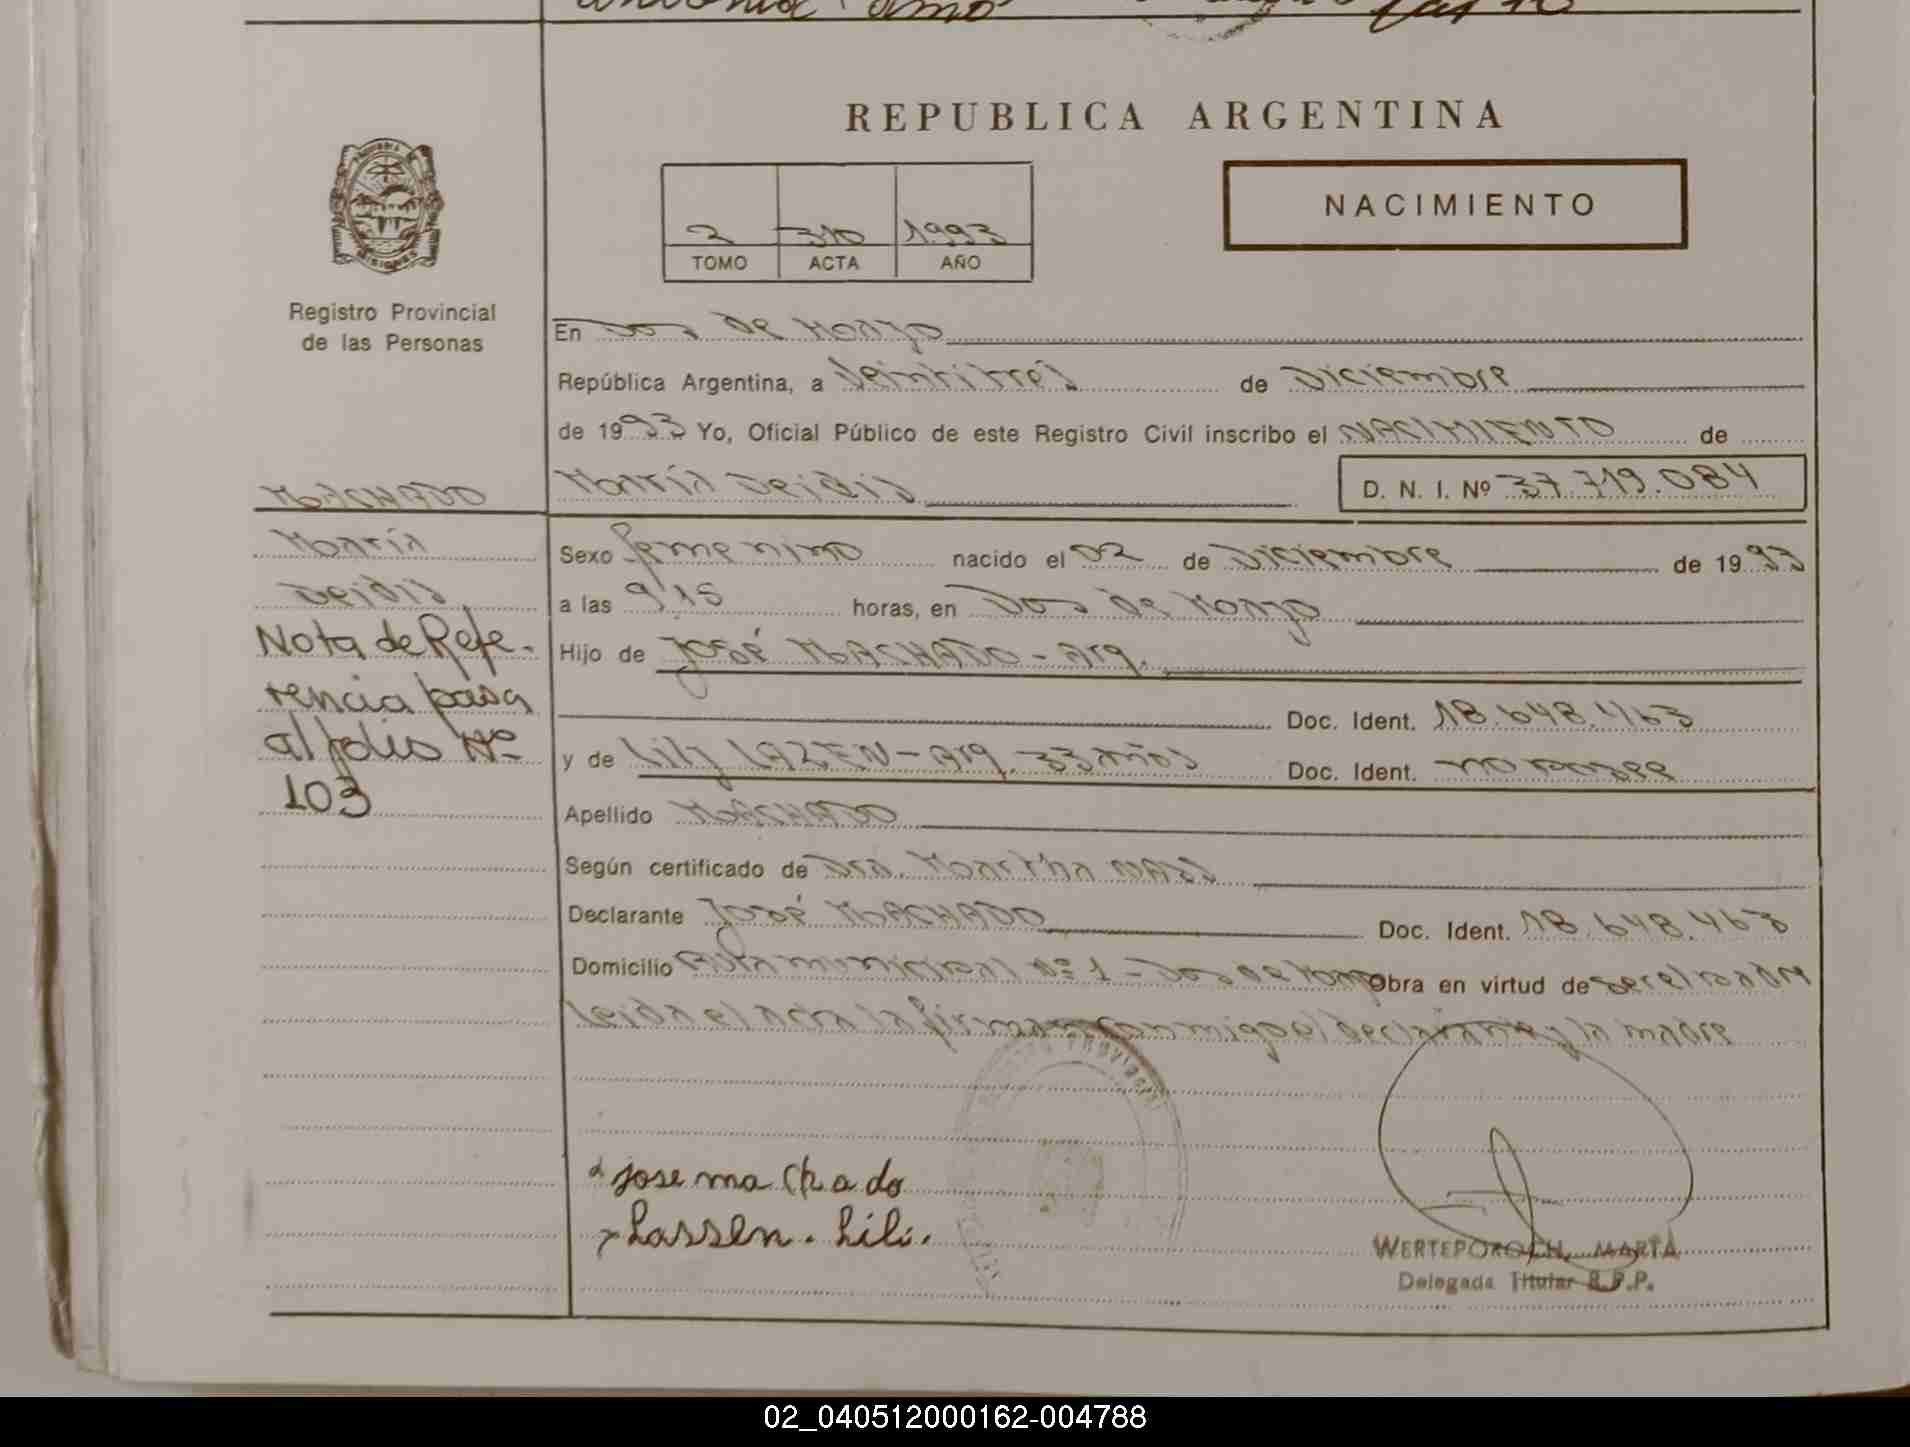 REPUBLICA ARGENTINA
NACIMIENTO
2 310 1993
TOMO ACTA AÑO
Registro Provincial
de las Personas
En Dos de Mayo
República Argentina, a Veintitrés de Diciembre
de 1993 Yo, Oficial Público de este Registro Civil inscribo el NACIMIENTO de
María Deidis D. N. I. Nº 37.719.084
MACHADO
María
Deidis
Nota de Refe-
rencia pasa
al folio Nº
103
Sexo femenino nacido el 02 de Diciembre de 1993
a las 9/15 horas, en Dos de Mayo
Hijo de José MACHADO - Arg.
Doc. Ident. 18.648.463
y de Lily LAZEN - Arg. 33 años Doc. Ident. no posee
Apellido MACHADO
Según certificado de Dra. Martha
Declarante José MACHADO Doc. Ident. 18.648.463
Domicilio Ruta municipal nº 1 - Dos de Mayo Obra en virtud de ser el padre
Leída el acta la firman conmigo el declarante y la madre
REGISTRO PROVINCIAL
jose machado
Lassen. Lili.
WERTEPOROCH, MARTA
Delegada Titular R.P.P.
02_040512000162-004788